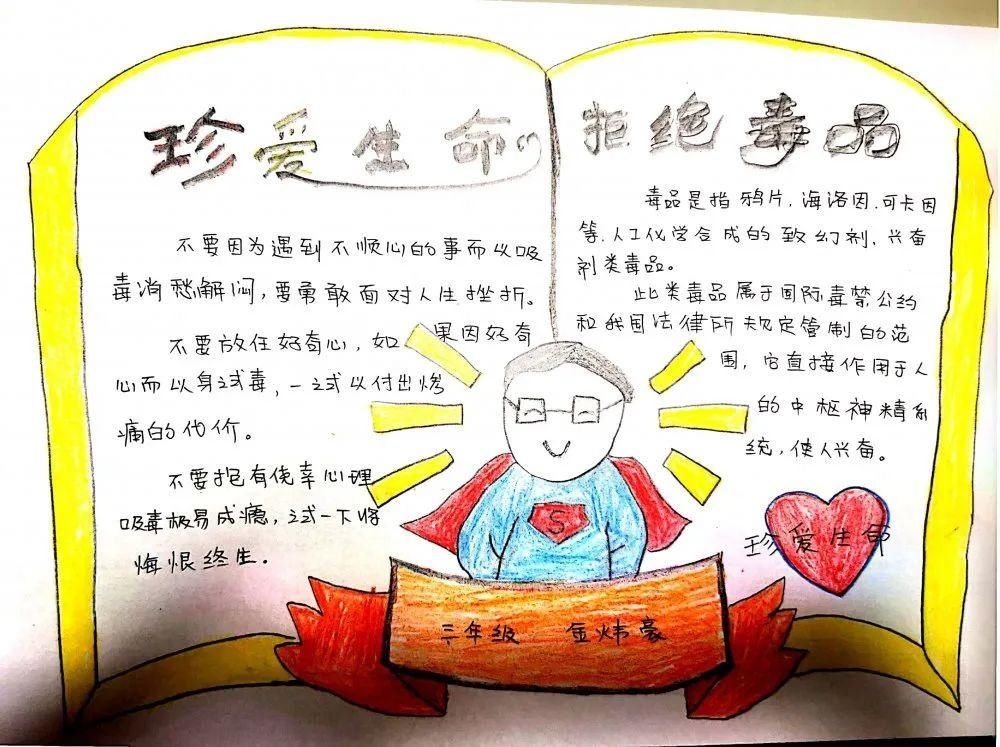 珍爱生命 拒绝毒品
不要因为遇到不顺心的事而以吸
毒消愁解闷，要勇敢面对人生挫折。
不要放任好奇心，如果因好奇
心而以身试毒，一试以付出惨
痛的代价。
不要抱有侥幸心理
吸毒极易成瘾，试一下将
悔恨终生。
毒品是指鸦片、海洛因、可卡因
等、人工化学合成的致幻剂、兴奋
剂类毒品。
此类毒品属于国际毒禁公约
和我国法律所规定管制的范
围，它直接作用于人
的中枢神精系
统，使人兴奋。
珍爱生命
S
三年级 金炜豪